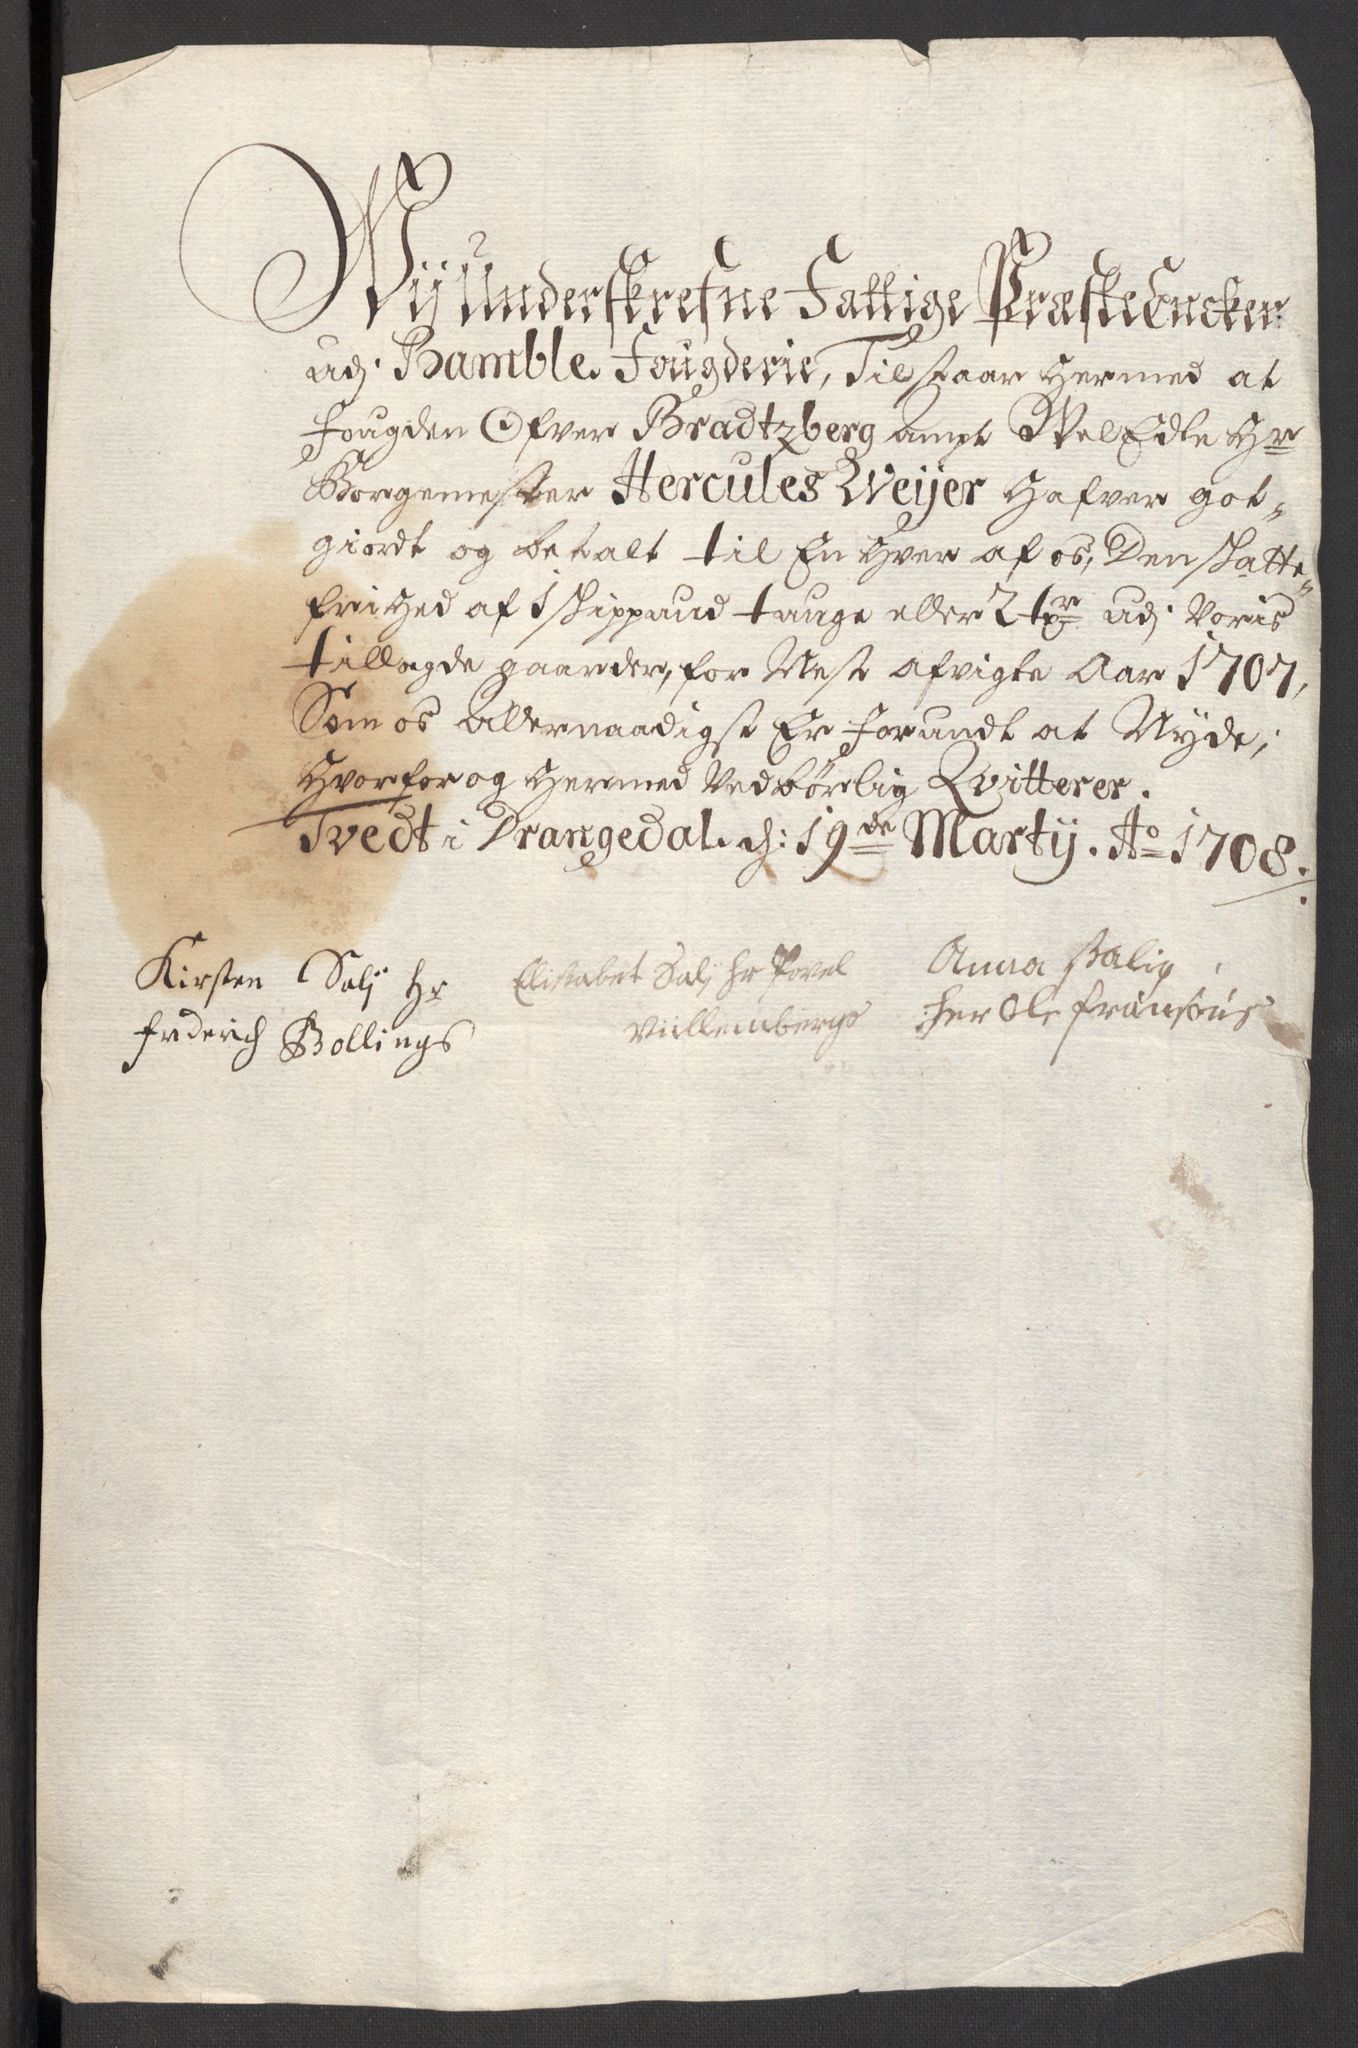 Wij Underskrefne Fattige Præste Encker
udj Bamble Fougderie, Tilstaar hermed at
fougden Ofver Bradtzberg ampt WelEdle Hr
Borgemester Hercules Weijer hafver got-
giordt og betalt til En hver af os, Den skatte-
frihed af 1 skippund tunge eller 2 tr udj Voris
tillagde gaarder, for Nest afvigte Aar 1707,
Som os allernaadigst Er forundt at Nyde;
hvorfor og hermed Vedbørlig Qvitterer.
Tvedt i Drangedal. d: 19de Martij. Ao 1708.
Kirsten Salj Hr
frderich Bollings
Elisabet Salj Hr Povel
Villembergs
Anna Salig
her Ole fransøns